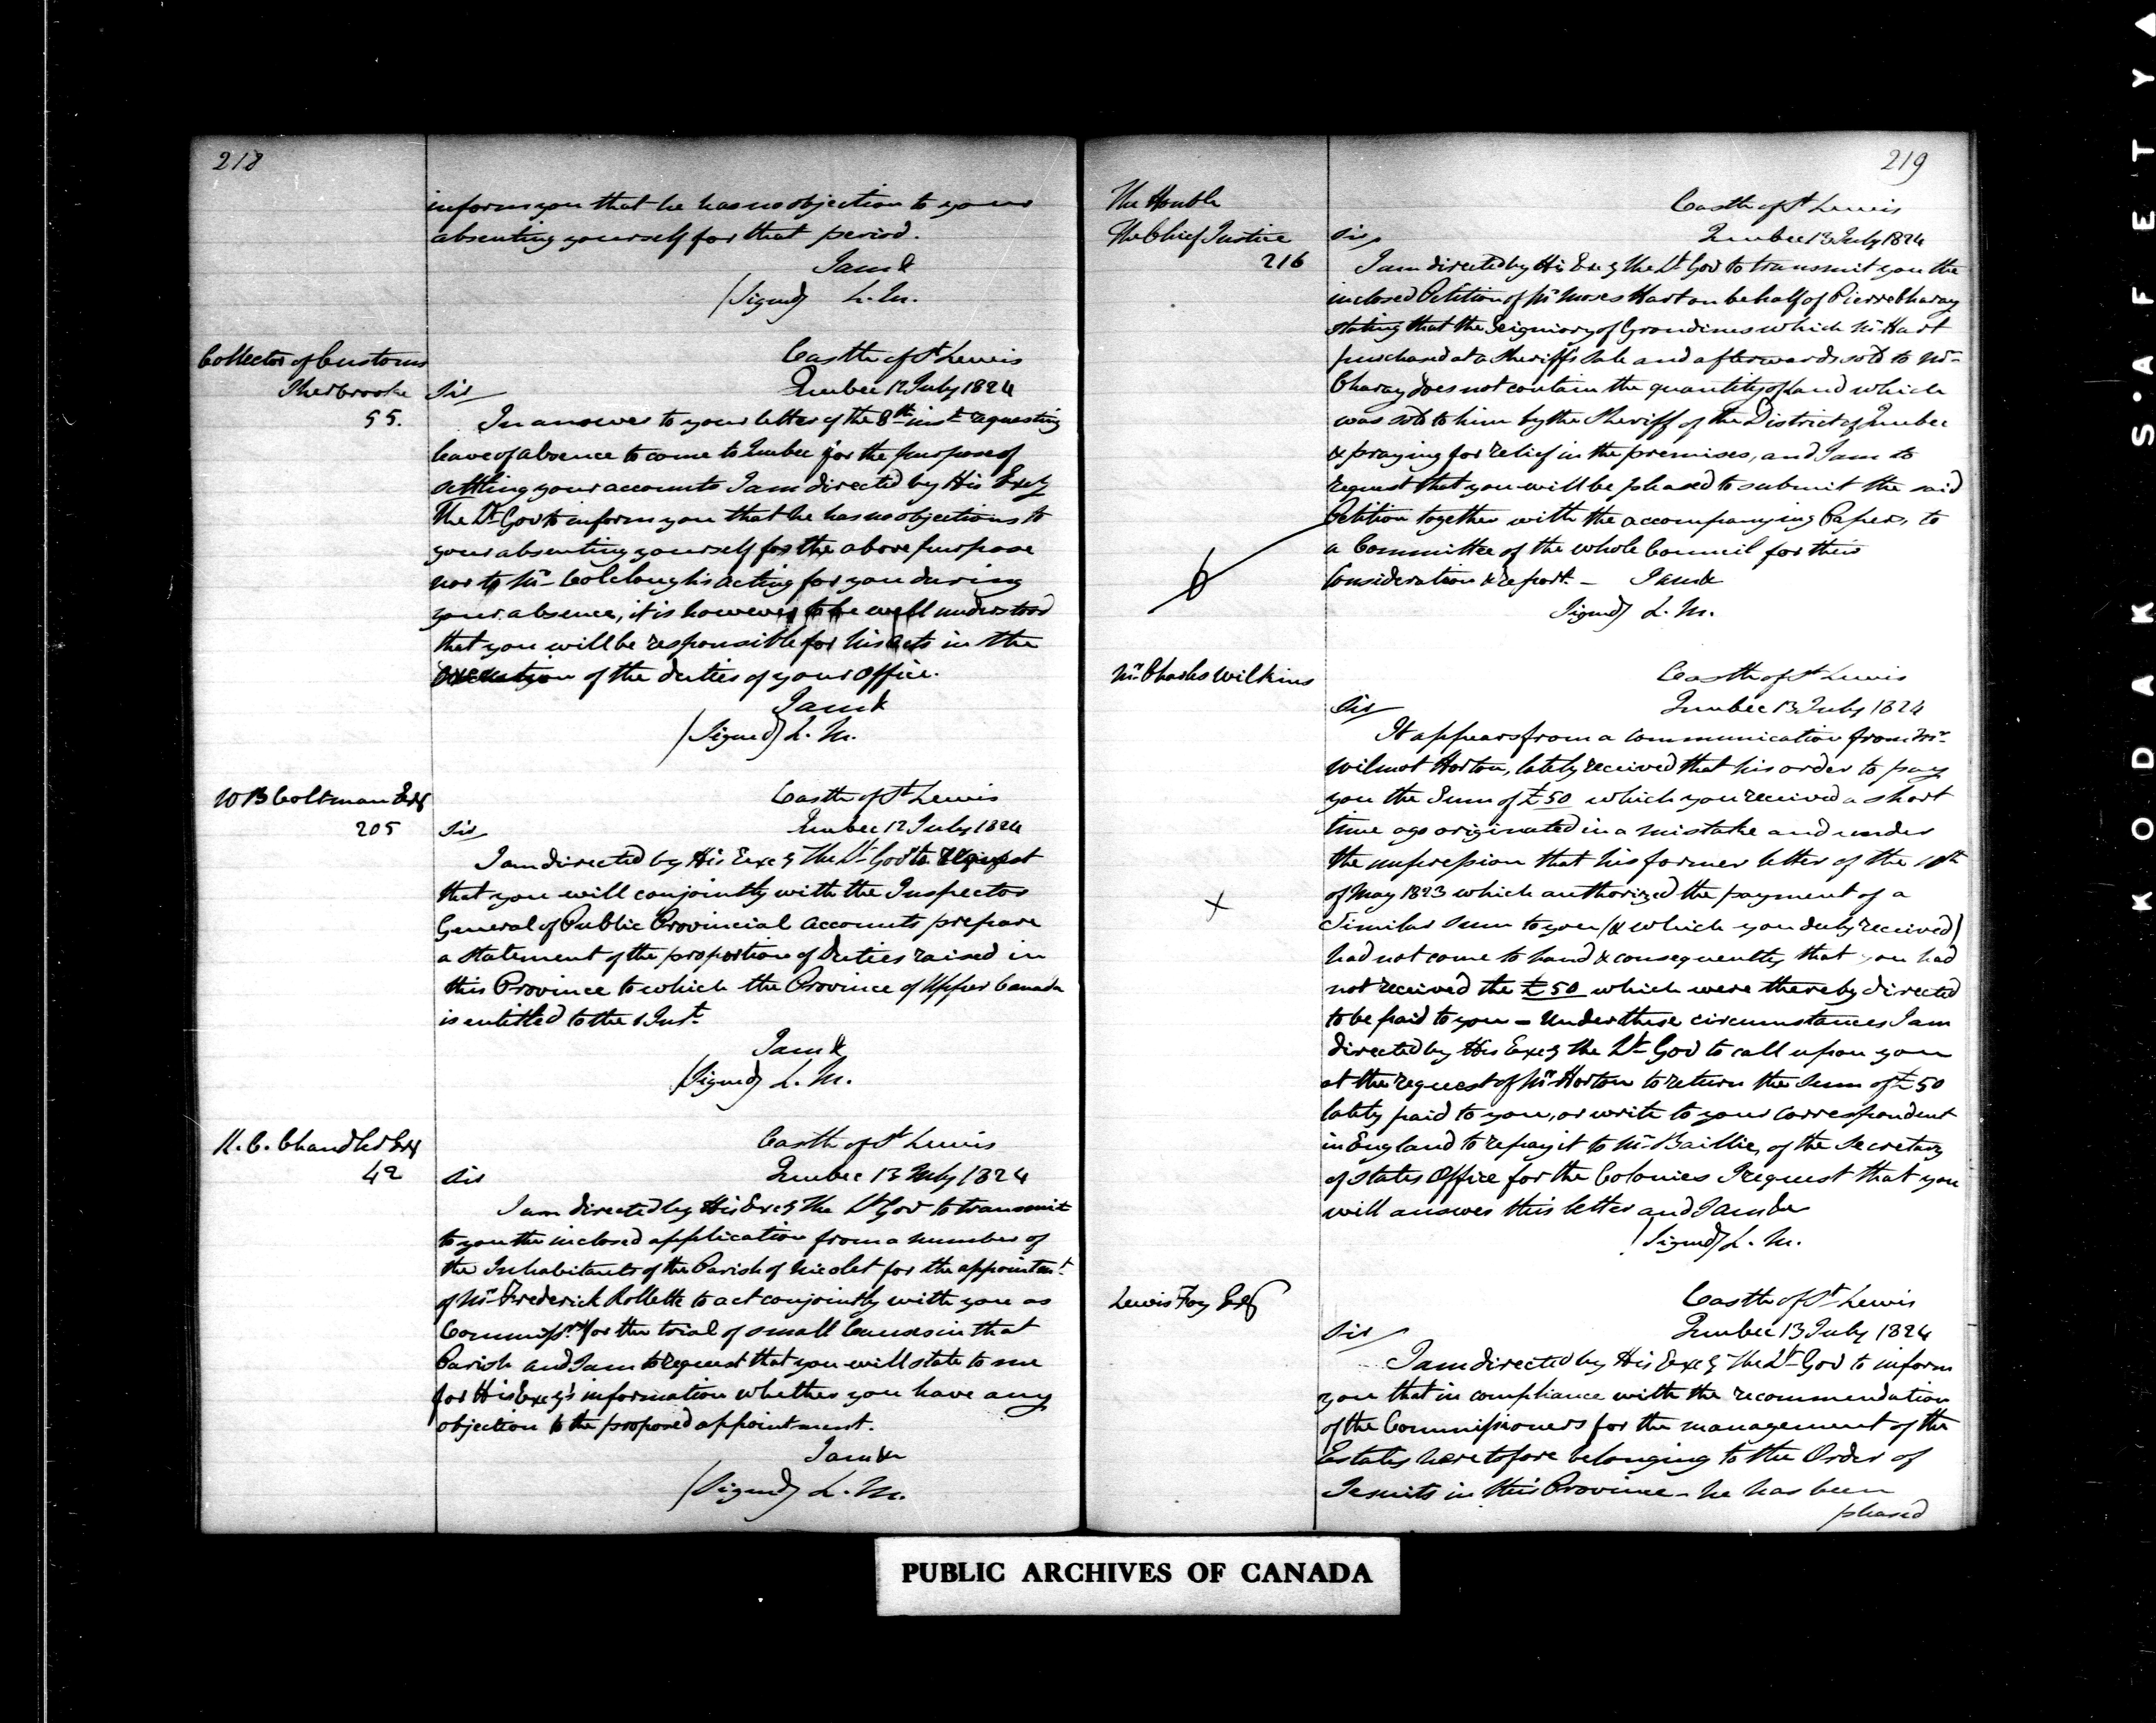 218
inform you that he has no objection to your
absenting yourself for that period.
I am &
(Signed) L. M.
Collector of Customs
Sherbrooke
55.
Castle of St Lewis
Quebec 12 July 1824
Sir
In answer to your letter of the 8th inst requesting
leave of absence to come to Quebec for the purpose of
settling your accounts I am directed by His Excy
The Lt Gov to inform you that he has no objections to
your absenting yourself for the above purpose
nor to Mr Colclough's acting for you during
your absence, it is however to be well understood
that you will be responsible for his acts in the
execution of the duties of your Office.
I am &
(Signed) L. M.
W B Coltman Esq
205
Castle of St Lewis
Quebec 12 July 1824
Sir
I am directed by His Excy The Lt Gov to request
that you will conjointly with the Inspector
General of Public Provincial Accounts prepare
a statement of the proportion of Duties raised in
this Province to which the Province of Upper Canada
is entitled to the 1 Inst.
I am &
(Signed) L. M.
K. C. Chandler Esq
42
Castle of St Lewis
Quebec 13 July 1824
Sir
I am directed by His Excy The Lt Gov to transmit
to you the inclosed application from a number of
the Inhabitants of the Parish of Nicolet for the appointmt
of Mr Frederick Rollette to act conjointly with you as
Commissr for the trial of small Causes in that
Parish and I am to request that you will state to me
for His Excy's information whether you have any
objection to the proposed appointment.
I am &c
(Signed) L. M.
219
The Honble
The Chief Justice
216
Castle of St Lewis
Quebec 13 July 1824
Sir
I am directed by His Excy The Lt Gov to transmit you the
inclosed Petition of Mr Moses Hart on behalf of Pierre Charay
stating that the Seigniory of Grondines which Mr Hart
purchased at a Sheriff's Sale and afterwards sold to Mr
Charay does not contain the quantity of land which
was sold to him by the Sheriff of the District of Quebec
& praying for relief in the premises, and I am to
request that you will be pleased to submit the said
Petition together with the accompanying Papers, to
a Committee of the whole Council for their
Consideration & report. – I am &
Signed) L. M.
Mr Charles Wilkins
Castle of St Lewis
Quebec 13 July 1824
Sir
It appears from a communication from Mr
Wilmot Horton, lately received that his order to pay
you the Sum of £50 which you received a short
time ago originated in a mistake and under
the impression that his former letter of the 10th
of May 1823 which authorized the payment of a
Similar Sum to you (& which you duly received)
had not come to hand & consequently that you had
not received the £50 which were thereby directed
to be paid to you – Under these circumstances I am
directed by His Excy the Lt Gov to call upon you
at the request of Mr Horton to return the Sum of £50
lately paid to you, or write to your correspondent
in England to repay it to Mr Baillie, of the Secretary
of States Office for the Colonies I request that you
will answer this letter and I am &c
(Signed) L. M.
Lewis Foy Esq
Castle of St Lewis
Quebec 13 July 1824
Sir
I am directed by His Excy The Lt Gov to inform
you that in compliance with the recommendation
of the Commissioners for the management of the
Estates heretofore belonging to the Order of
Jesuits in this Province – he has been
pleased
PUBLIC ARCHIVES OF CANADA
KODAK S·AFETY